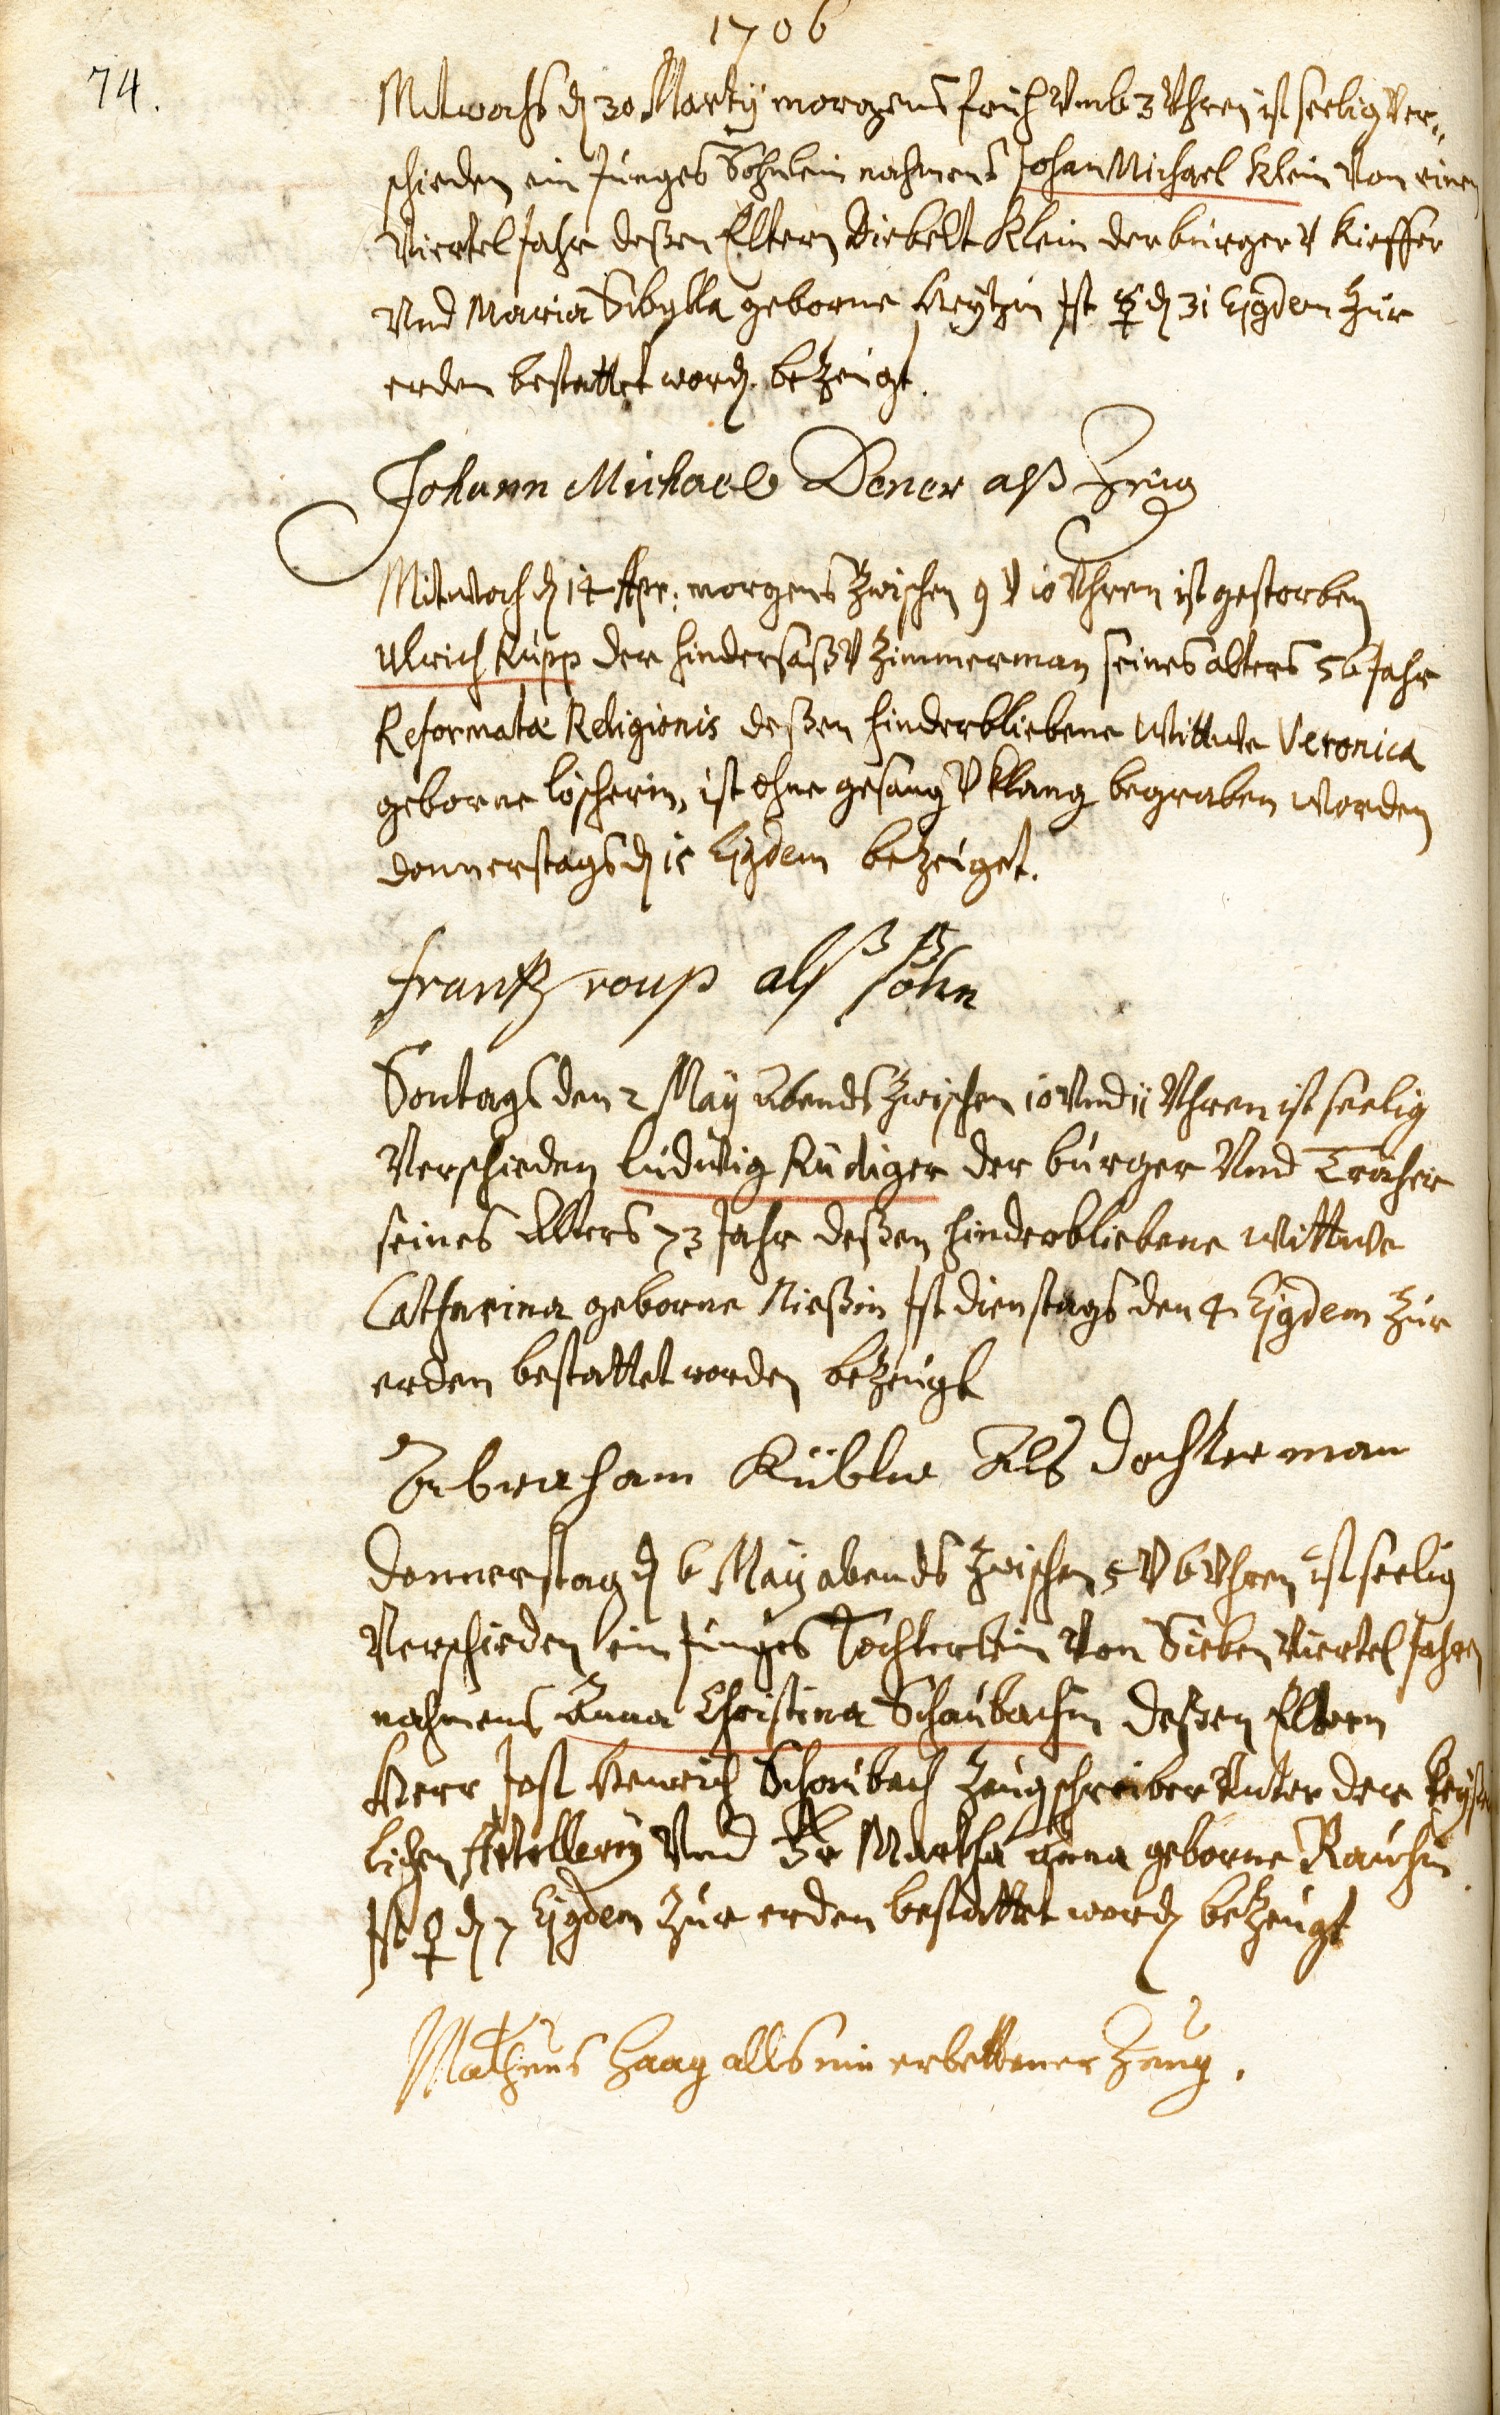 1706
74.
Mitwochs d 30 Marty morgens früh Umb 3 Uhren ist seelig Ver„
schieden ein Junges Söhnlein nahmens Johan Michael Klein Von einem
Viertel Jahr deßen Eltern Diebelt Klein der burger V Kieffer
Und Maria Sibylla geborne Heytzin Ist ☿ d 31 Ejgdem Zur
erden bestattet word. beZeugt.
Johann Michael Dener alß Zeug
Mitwoch d 14 Apr: morgens Zwischen 9 V 10 Uhren ist gestorben
Ulrich Rupp der hindersaß V Zimmerman seines alters 56 Jahr
Reformatæ Religionis deßen hinderbliebene Wittwe Veronica
geborne Löscherin, ist ohne gesang V klang begraben worden
donnerstags d 15 Ejgdem beZeuget.
frantz roup alß sohn
Sontags den 2 May Abends Zwischen 10 Und 11 Uhren ist seelig
Verschieden Ludwig Rudiger der burger Und
seines Alters 73 Jahr deßen hinderbliebene Wittwe
Catharina geborne Nießin Ist dienstags den 4 Ejgdem Zur
erden bestattet worden beZeugt
Abraham Kübler Als dochterman
Donnerstag d 6 May abends Zwischen 5 V 6 Uhren ist seelig
Verschieden ein Junges Töchterlein Von Sieben Viertel Jahren
nahmens Anna Christina Schaubachin deßen Eltern
Herr Jost Henrich Schaubach Zeugschreiber Unter der
lichen Artollery Und Fr Martha Anna geborne Rauchin
Ist ♀ d 7 Ejgdem Zur erden bestattet word beZeugt
Matheus Haag alls ein erbettener Zeug.